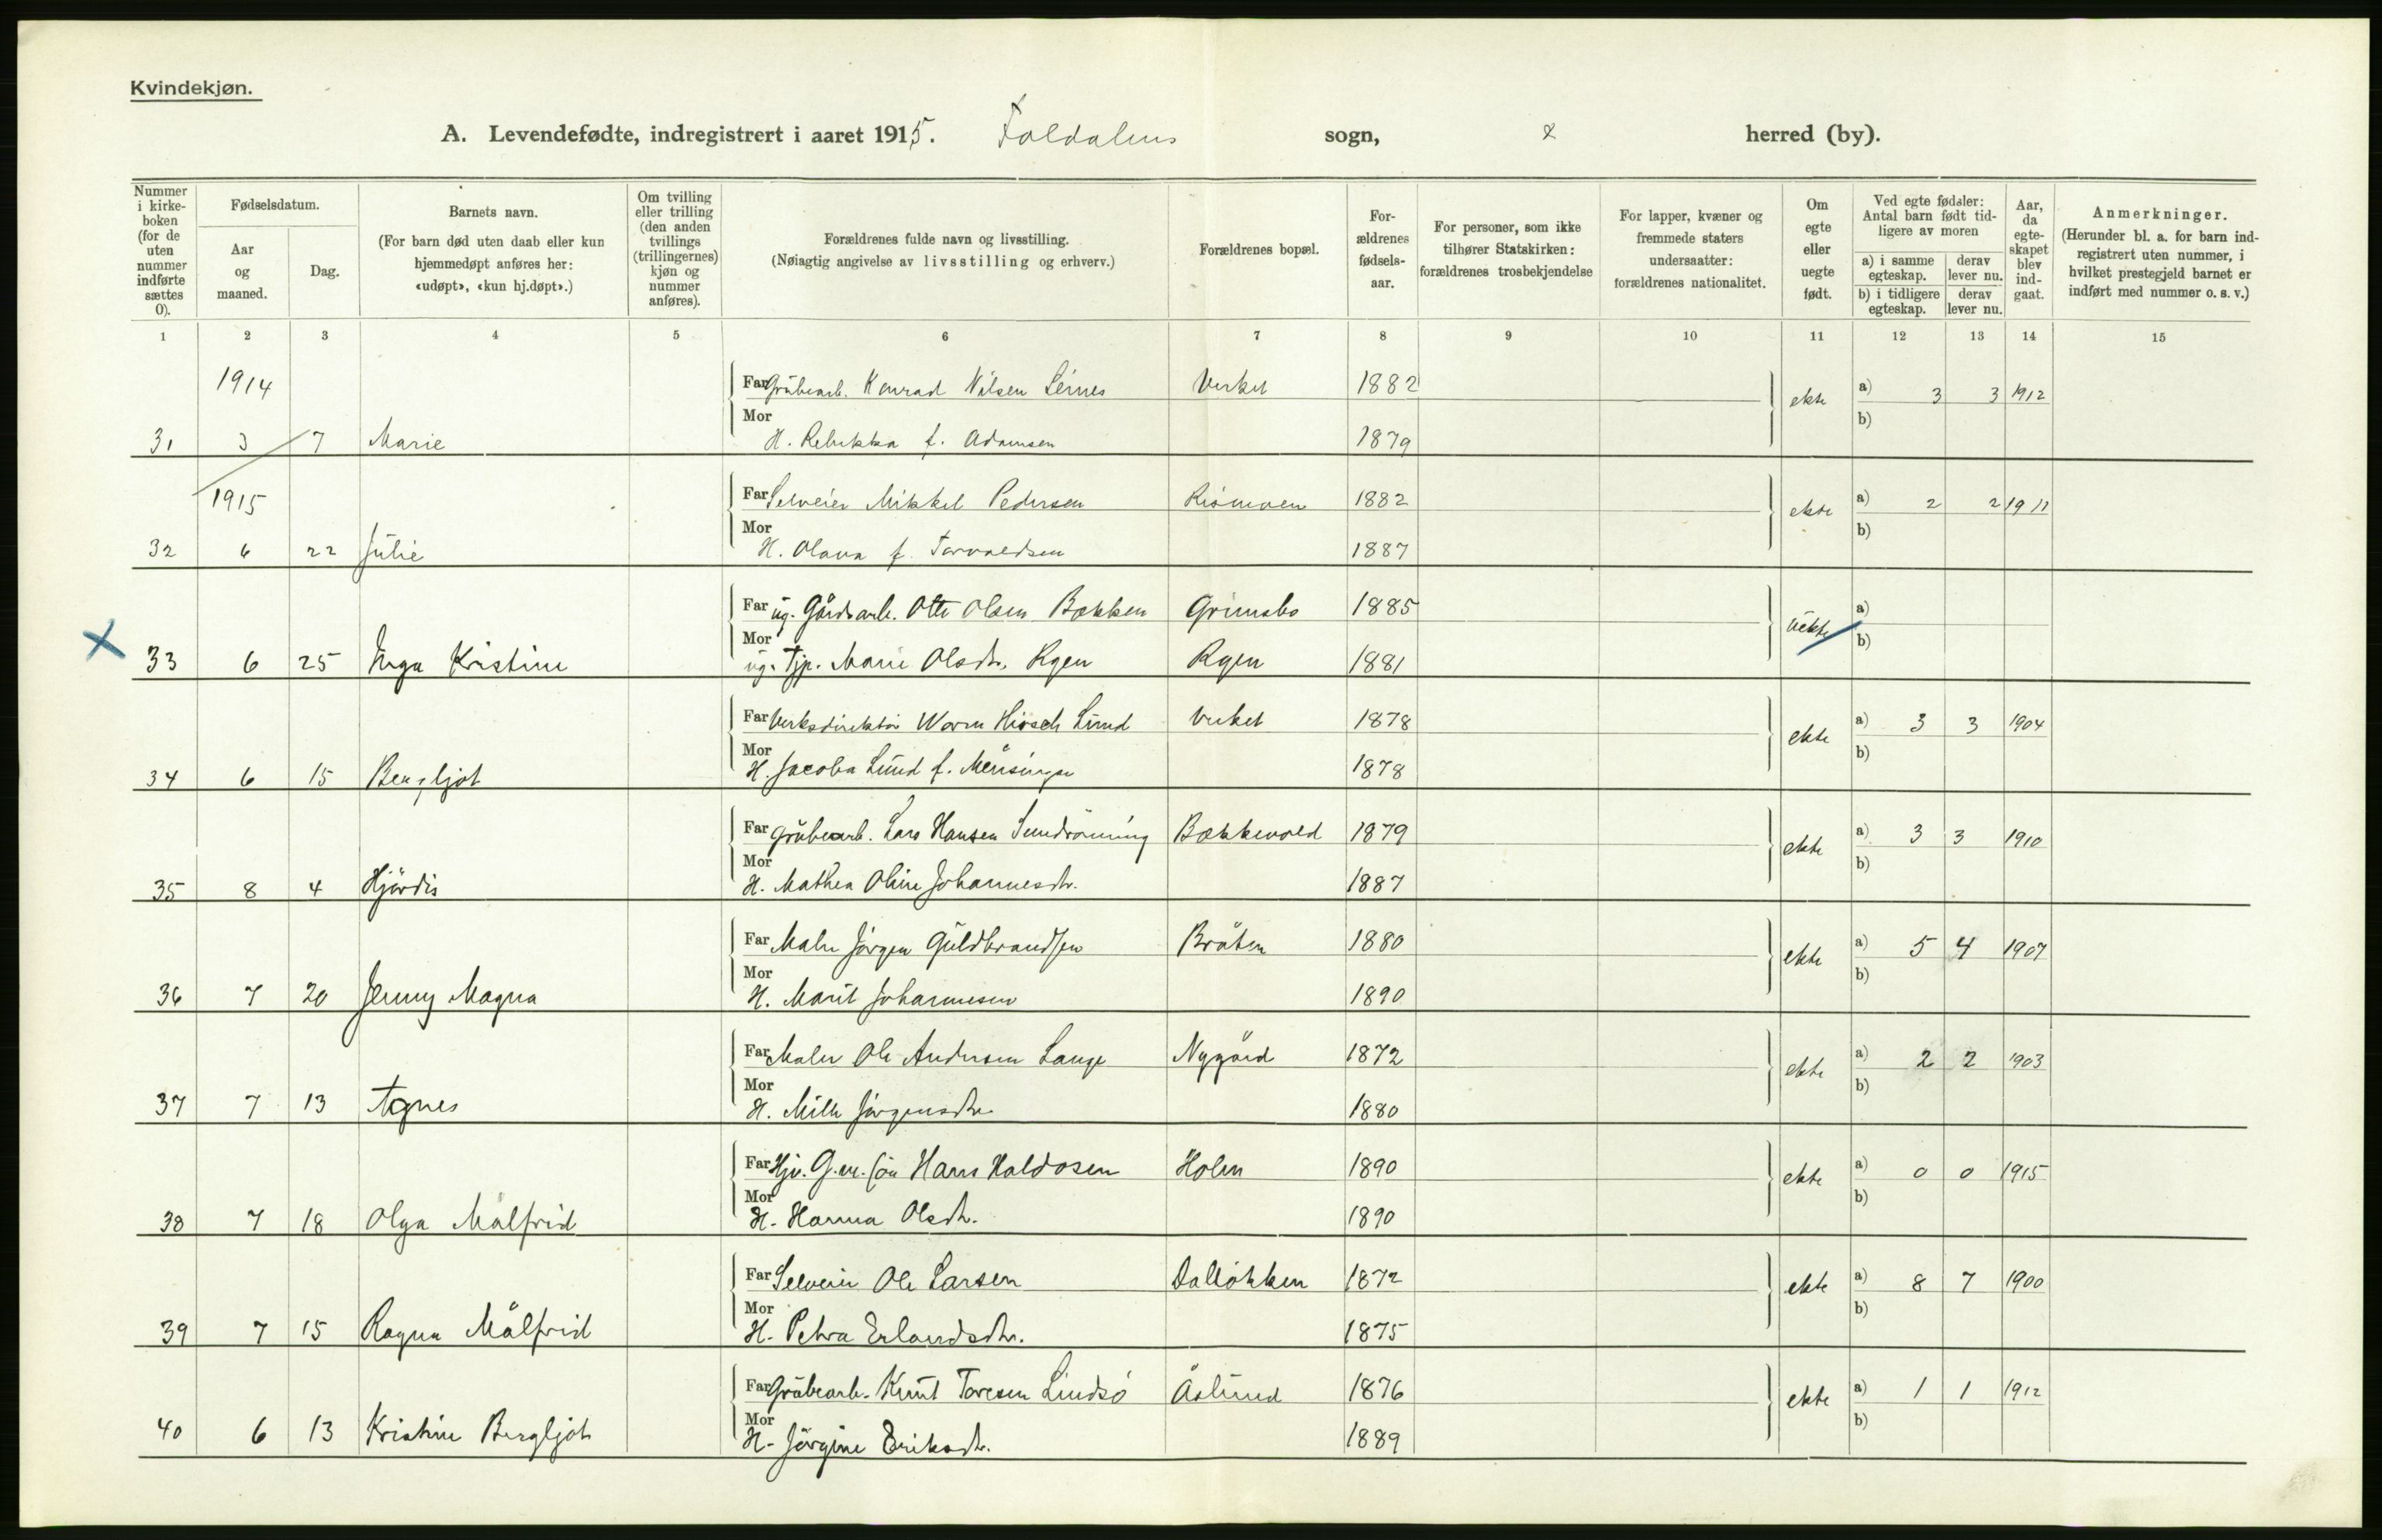 Kvindekjøn.
A. Levendefødte, indregistrert i aaret 1915. Foldalens sogn, & herred (by).
Nummer i kirkeboken (for de uten nummer indførte sættes 0).
Fødselsdatum.
Aar og maaned.
Dag.
Barnets navn.
(For barn død uten daab eller kun hjemmedøpt anføres her: «udøpt», «kun hj.døpt».)
Om tvilling eller trilling (den anden tvillings (trillingernes) kjøn og nummer anføres).
Forældrenes fulde navn og livsstilling.
(Nøiagtig angivelse av livsstilling og erhverv.)
Forældrenes bopæl.
Forældrenes fødselsaar.
For personer, som ikke tilhører Statskirken: forældrenes trosbekjendelse
For lapper, kvæner og fremmede staters undersaatter: forældrenes nationalitet.
Om egte eller uegte født.
Ved egte fødsler: Antal barn født tidligere av moren
a) i samme egteskap.
derav lever nu.
b) i tidligere egteskap.
derav lever nu.
Aar, da egteskapet blev indgaat.
Anmerkninger.
(Herunder bl. a. for barn indregistrert uten nummer, i hvilket prestegjeld barnet er indført med nummer o. s. v.)
1 2 3 4 5 6 7 8 9 10 11 12 13 14 15
1914 Far Grubearb. Konrad Nilsen Verket 1882 ekte a) 3 3 1912
31 3 7 Marie Mor H. Rebekka f. Adamsen 1879 b)
1915 Far Selveier Mikkel Pedersen 1882 ekte a) 2 2 1911
32 6 22 Julie Mor H. Olava f. Torvaldsen 1887 b)
Far ug. Gårdsarb. Otto Olsen Bækken Grimsbo 1885 uekte a)
X 33 6 25 Inga Kristine Mor ug. Tjp. Marie Olsdtr. Rgen Rgen 1881 b)
Far Verksdirektör Worm Hirsch Lund Verket 1878 ekte a) 3 3 1904
34 6 15 Bergljot Mor H. Jacoba Lund f. 1878 b)
Far Grubearb. Lars Hansen Bækkevold 1879 ekte a) 3 3 1910
35 8 4 Hjördis Mor H. Mathea Oline Johannesdtr. 1887 b)
Far Maler Jörgen Guldbrandsen Bråten 1880 ekte a) 5 4 1907
36 7 20 Jenny Magna Mor H. Marit Johannesen 1890 b)
Far Maler Ole Andersen Lange Nygård 1872 ekte a) 2 2 1903
37 7 13 Agnes Mor H. Milli Jörgensdtr. 1880 b)
Far Hjv. G.m. sön Hans Haldosen Holen 1890 ekte a) 0 0 1915
38 7 18 Olga Målfrid Mor H. Hanna Olsdtr. 1890 b)
Far Selveier Ole Larsen Dallökken 1872 ekte a) 8 7 1900
39 7 15 Ragna Målfrid Mor H. Petra Erlandsdtr. 1875 b)
Far Grubearb. Knut Toresen Lindsö Åslund 1876 ekte a) 1 1 1912
40 6 13 Kristine Bergljot Mor H. Jörgine Eriksdtr. 1889 b)